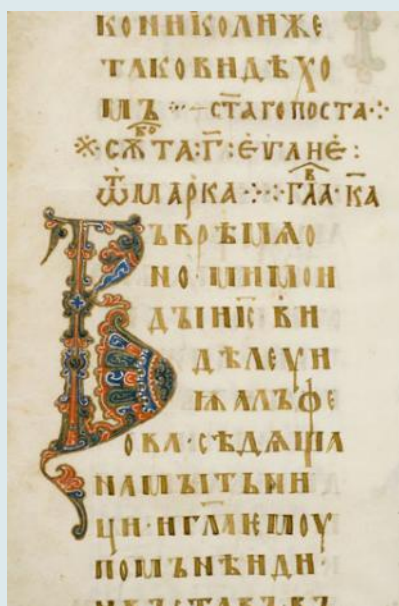 КОНИКОЛИЖЕ
ТАКОВИДѢХО
МЪ ⁘ – СТ҃АГОПОСТА ⁘
※ СѪБОТА · Г҃ : ЕѴА҃НЕ :
Ѿ МАРКА ⁘ ГЛ҃АВ · К҃А
ВЪВРѢМѦО
НО · МИМОИ
ДЪІІН҃СВИ
ДѢЛЕѴГИ
ѬАЛЪФЕ
ОВА · СѢДѦЩА
НАМЪІТЬНИ
ЦИ · ИГЛ҃АЕМОУ
ПОМЪНѢИДИ ·
ИВЪСТАВЪВЪ